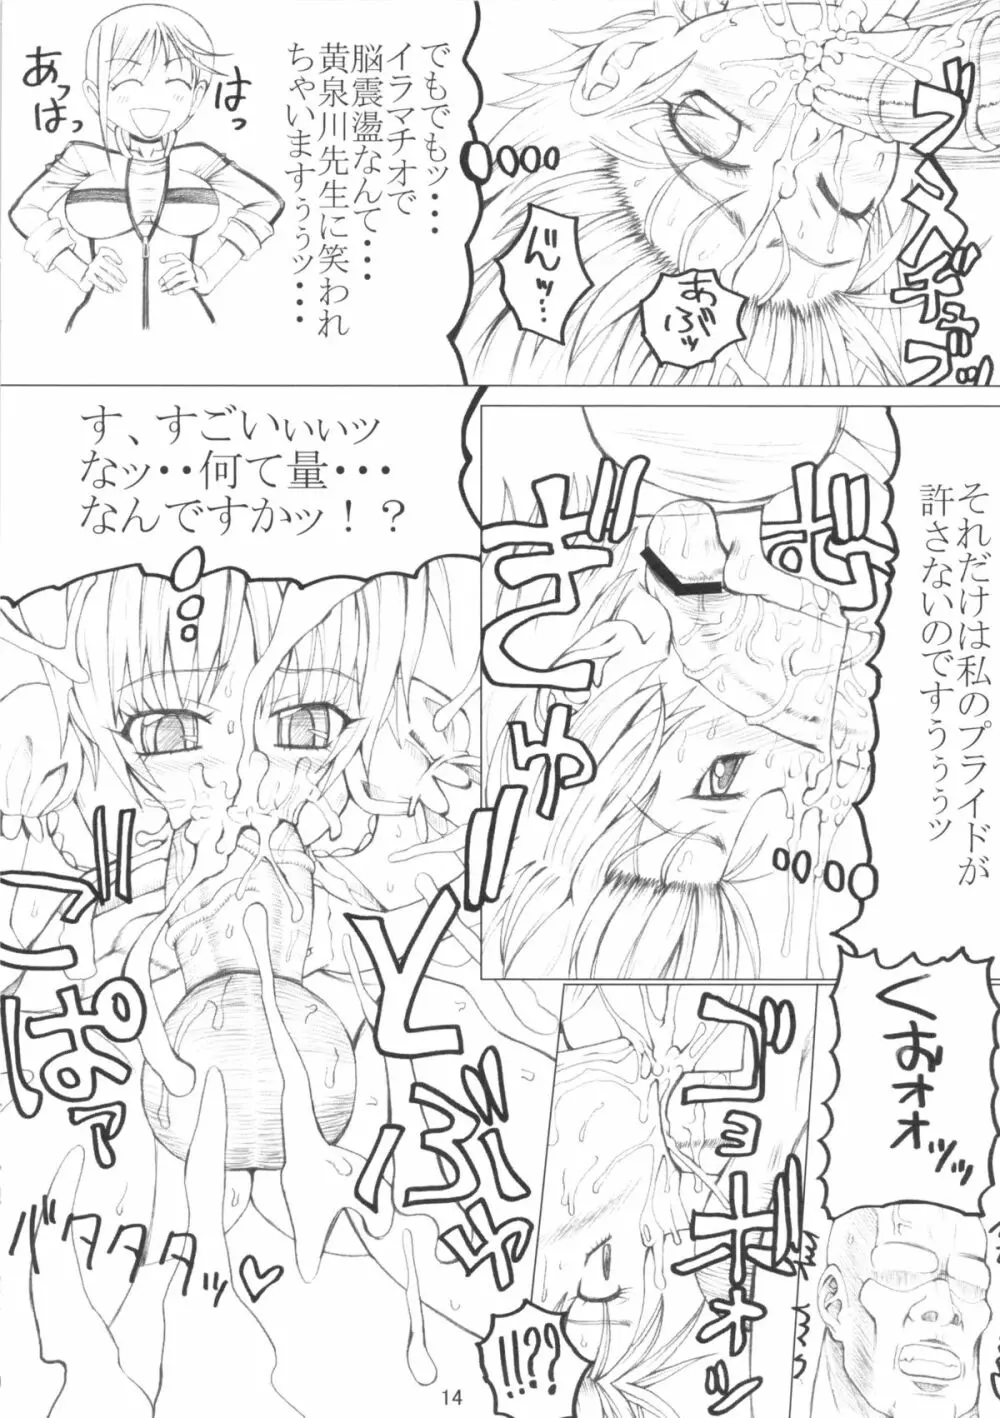 ブヘメバギュブッ
でもでもッ・・・
イラマチオで
脳震盪なんて・・・
黄泉川先生に笑われ
ちゃいますぅぅッ・・・
あっはっ
はっ
んッ…
あぶッ
それだけは私のプライドが
許さないのですぅぅぅッ
むぎゅ
す、すごいぃぃぃッ
なッ・・何て量・・・
なんですかッ！？
くぉオォオッッ
ブョボォッ
どぶゅ
ぱァ
タタタッ♡
!!!??
14